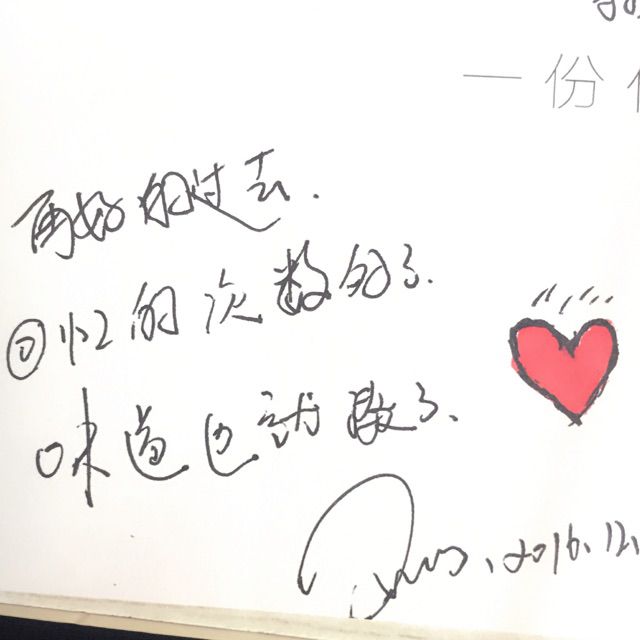 一份
再好的过去.
回忆的次数多了.
味道也就散了.
2016.12.